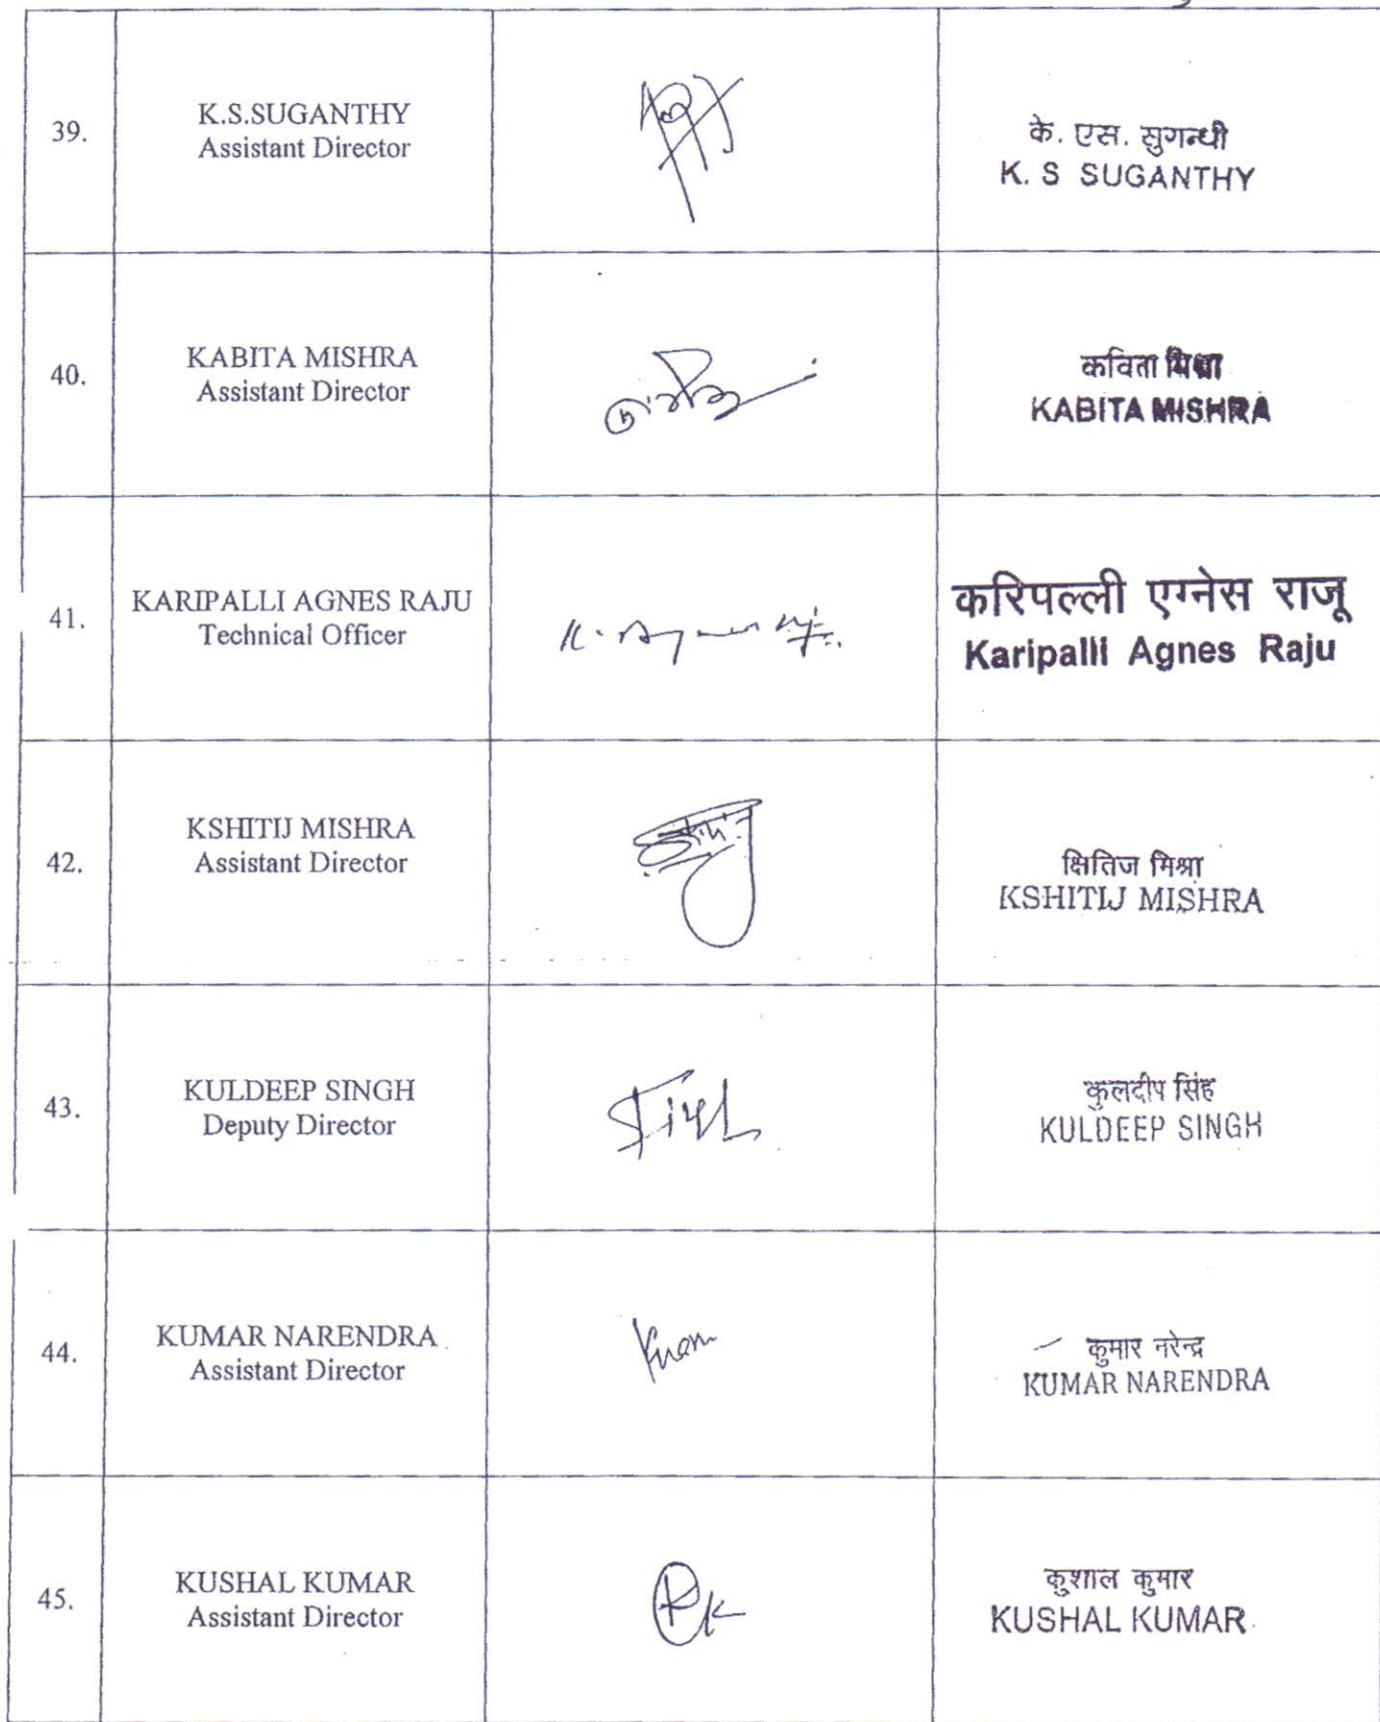 39.
K.S.SUGANTHY
Assistant Director
के. एस. सुगन्धी
K. S SUGANTHY
40.
KABITA MISHRA
Assistant Director
कविता मिश्रा
KABITA MISHRA
41.
KARIPALLI AGNES RAJU
Technical Officer
करिपल्ली एग्नेस राजू
Karipalli Agnes Raju
42.
KSHITIJ MISHRA
Assistant Director
क्षितिज मिश्रा
KSHITIJ MISHRA
43.
KULDEEP SINGH
Deputy Director
कुलदीप सिंह
KULDEEP SINGH
44.
KUMAR NARENDRA
Assistant Director
कुमार नरेन्द्र
KUMAR NARENDRA
45.
KUSHAL KUMAR
Assistant Director
कुशाल कुमार
KUSHAL KUMAR